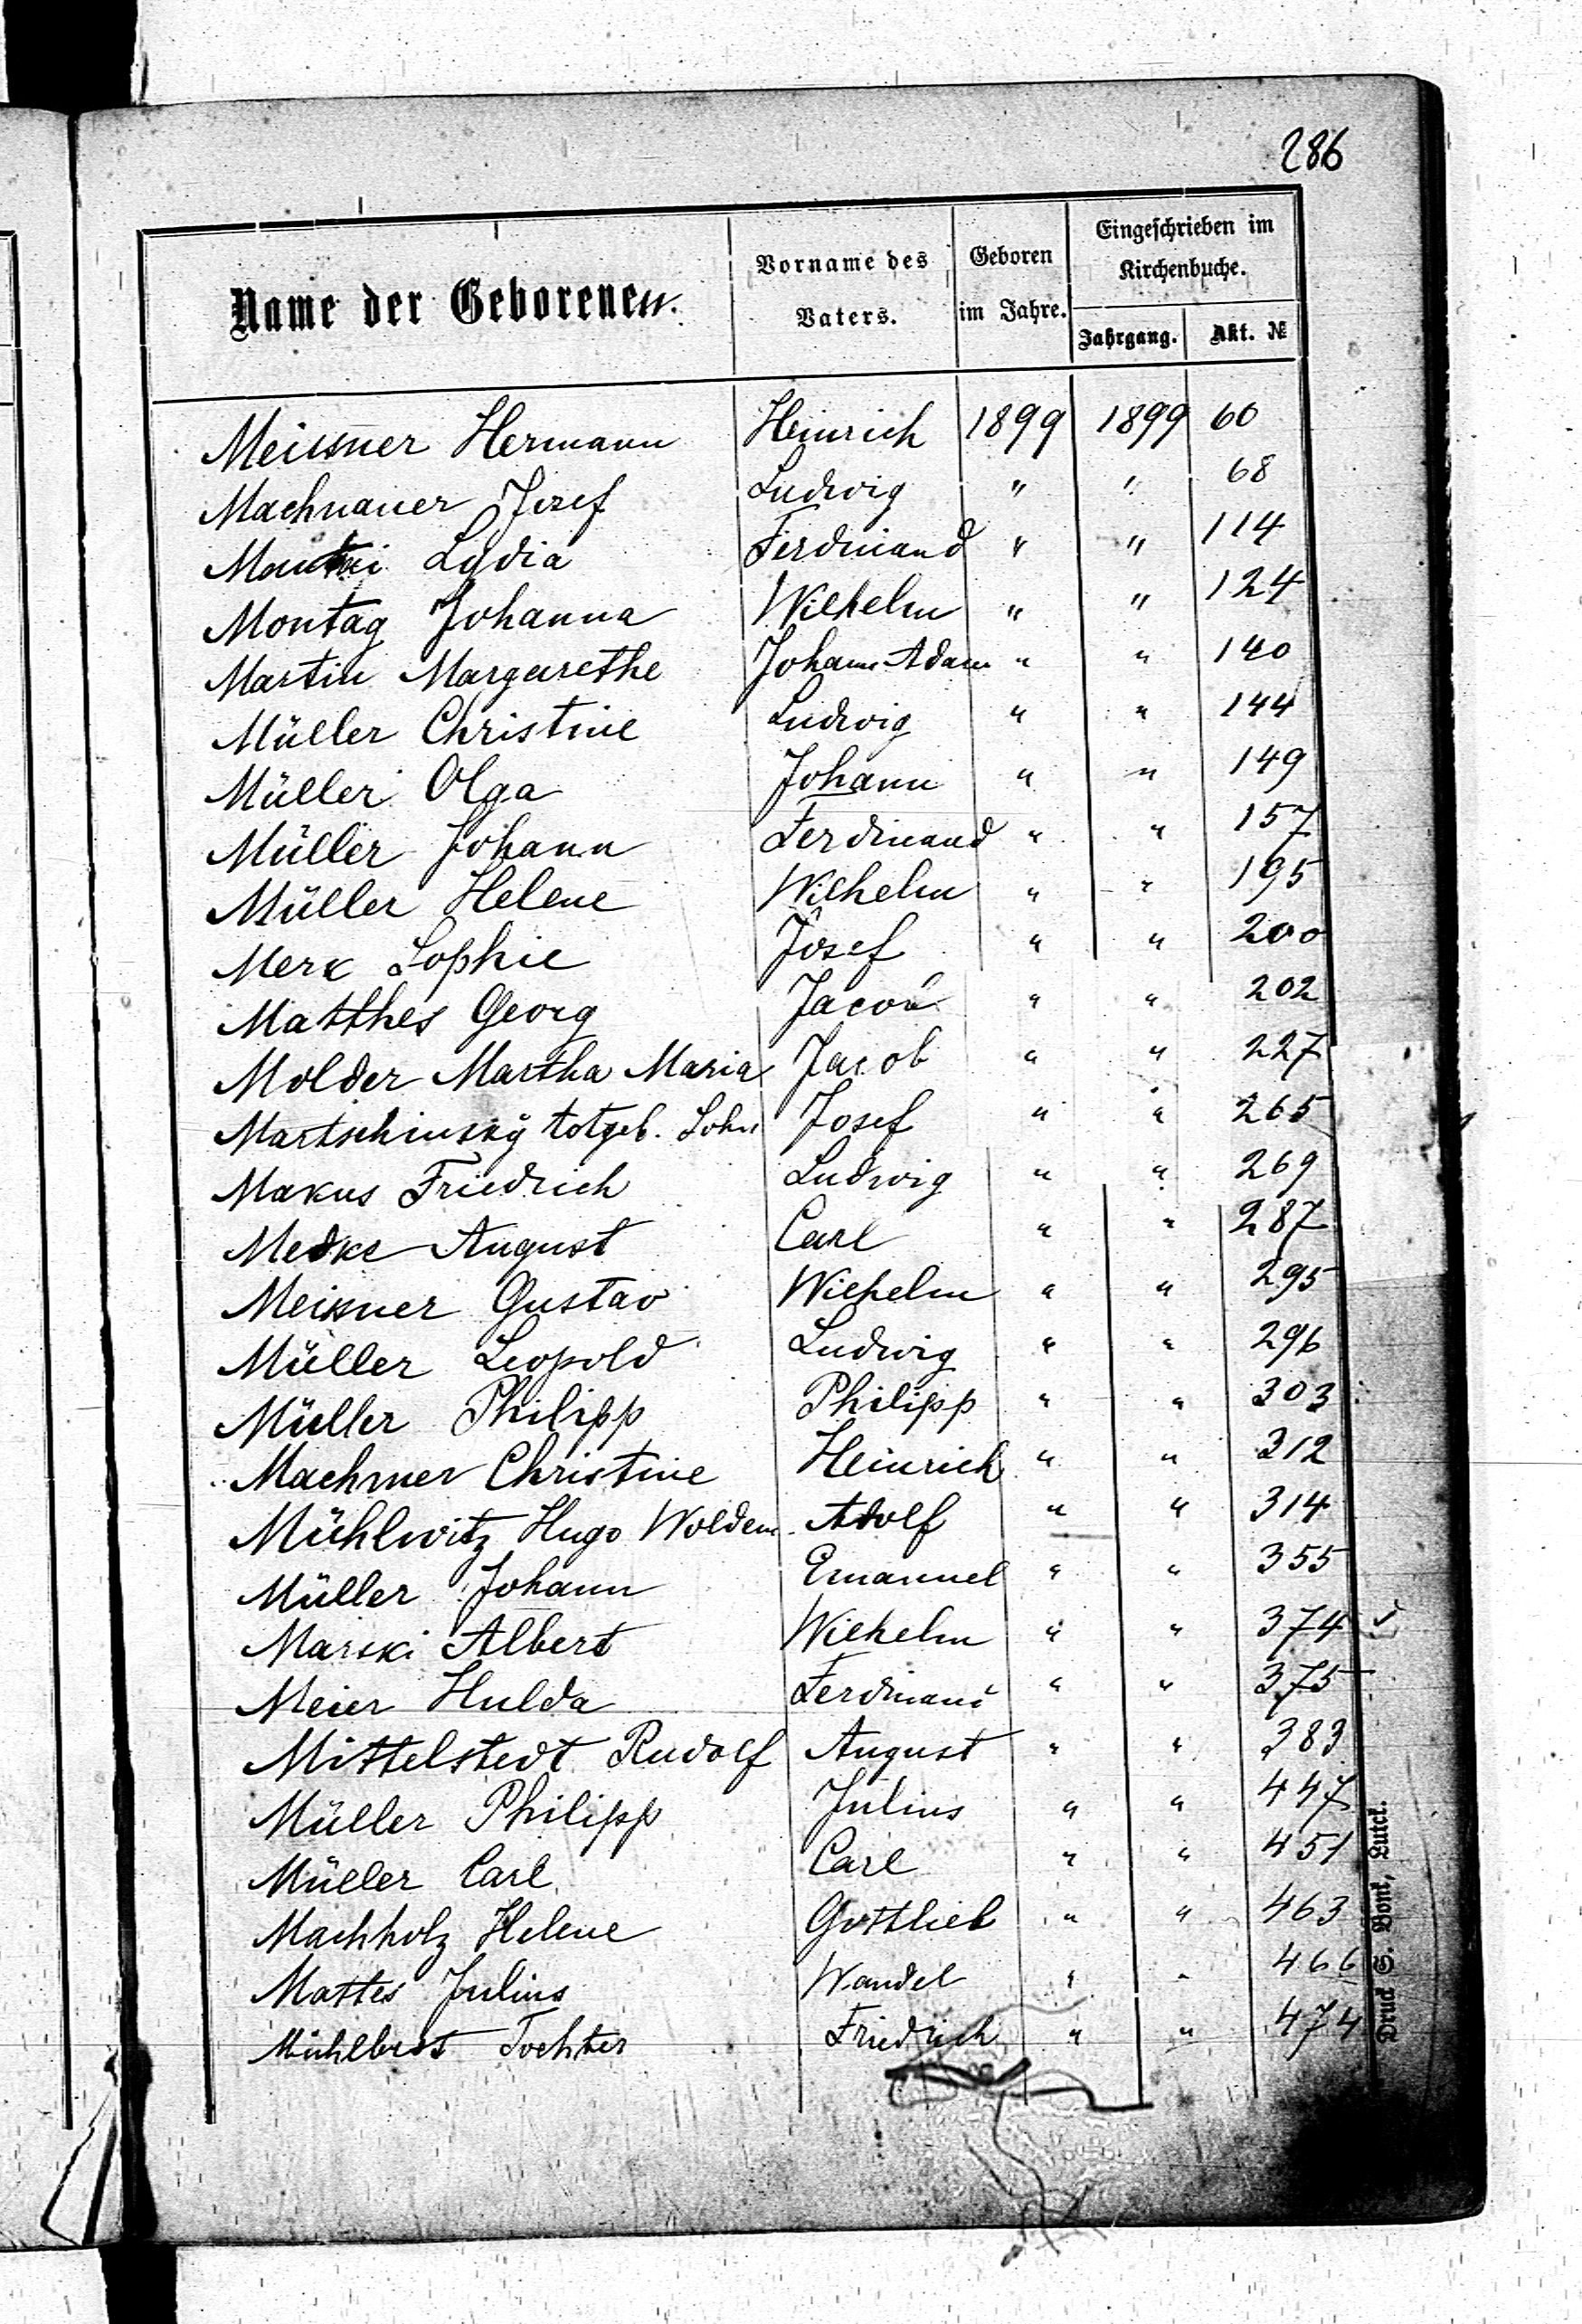 286
Name der Geborenen.
Vorname des Vaters.
Geboren im Jahre.
Eingeschrieben im Kirchenbuche.
Jahrgang. Akt. №
Meissner Hermann Heinrich 1899 1899 60
Machnauer Josef Ludwig " " 68
Lydia Ferdinand " " 114
Montag Johanna Wilhelm " " 124
Martin Margarethe Johann Adam " " 140
Müller Christine Ludwig " " 144
Müller Olga Johann " " 149
Müller Johann Ferdinand " " 157
Müller Helene Wilhelm " " 195
Merk Sophie Josef " " 200
Matthes Georg Jacob " " 202
Molder Martha Maria Jacob " " 227
Martschinsky totgeb. Sohn Josef " " 265
Makus Friedrich Ludwig " " 269
Medke August Carl " " 287
Meissner Gustav Wilhelm " " 295
Müller Leopold Ludwig " " 296
Müller Philipp Philipp " " 303
Machmer Christine Heinrich " " 312
Mühlwitz Hugo Woldem. Adolf " " 314
Müller Johann Emanuel " " 355
Marski Albert Wilhelm " " 374
Meier Hulda Ferdinand " " 375
Mittelstedt Rudolf August " " 383
Müller Philipp Julius " " 447
Müller Carl Carl " " 451
Machholz Helene Gottlieb " " 463
Mattes Julius Wandel " " 466
Tochter Friedrich " " 474
Druck S. Bonk, Lutck.